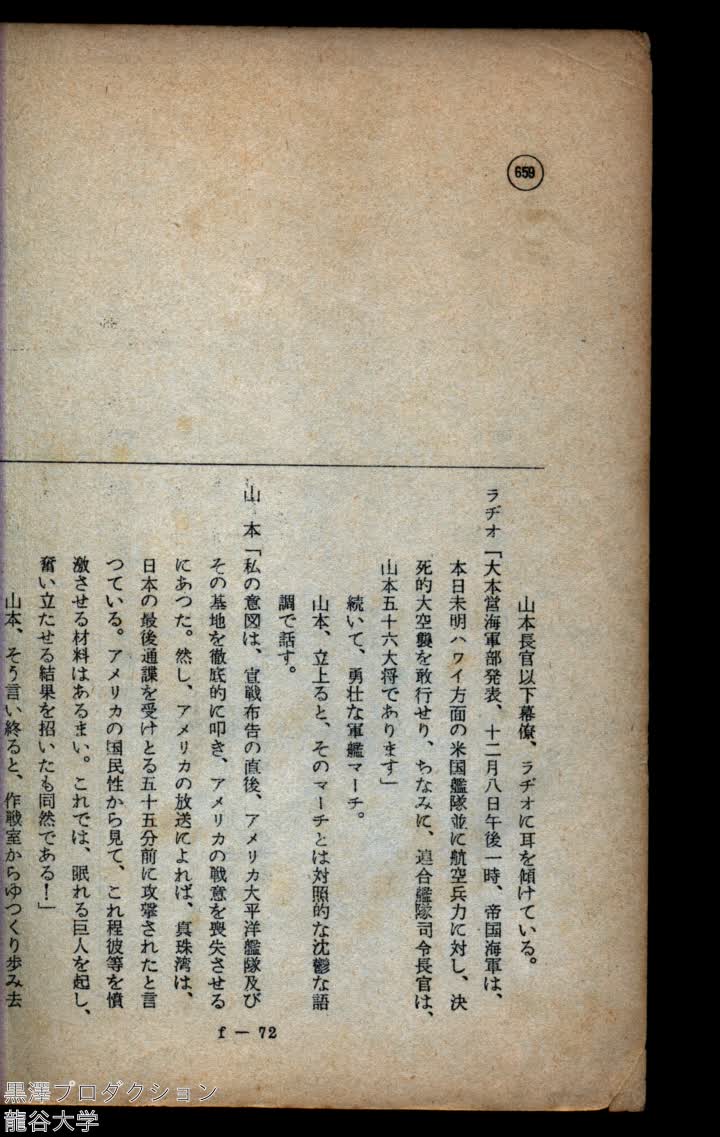 659
山本長官以下幕僚、ラヂオに耳を傾けている。
ラヂオ「大本営海軍部発表、十二月八日午後一時、帝国海軍は、
本日未明ハワイ方面の米国艦隊並に航空兵力に対し、決
死的大空襲を敢行せり、ちなみに、連合艦隊司令長官は、
山本五十六大将であります」
続いて、勇壮な軍艦マーチ。
山本、立上ると、そのマーチとは対照的な沈鬱な語
調で話す。
山　本「私の意図は、宣戦布告の直後、アメリカ太平洋艦隊及び
その基地を徹底的に叩き、アメリカの戦意を喪失させる
にあつた。然し、アメリカの放送によれば、真珠湾は、
日本の最後通諜を受けとる五十五分前に攻撃されたと言
つている。アメリカの国民性から見て、これ程彼等を憤
激させる材料はあるまい。これでは、眠れる巨人を起し、
奮い立たせる結果を招いたも同然である！」
山本、そう言い終ると、作戦室からゆつくり歩み去
f — 72
黒澤プロダクション
龍谷大学